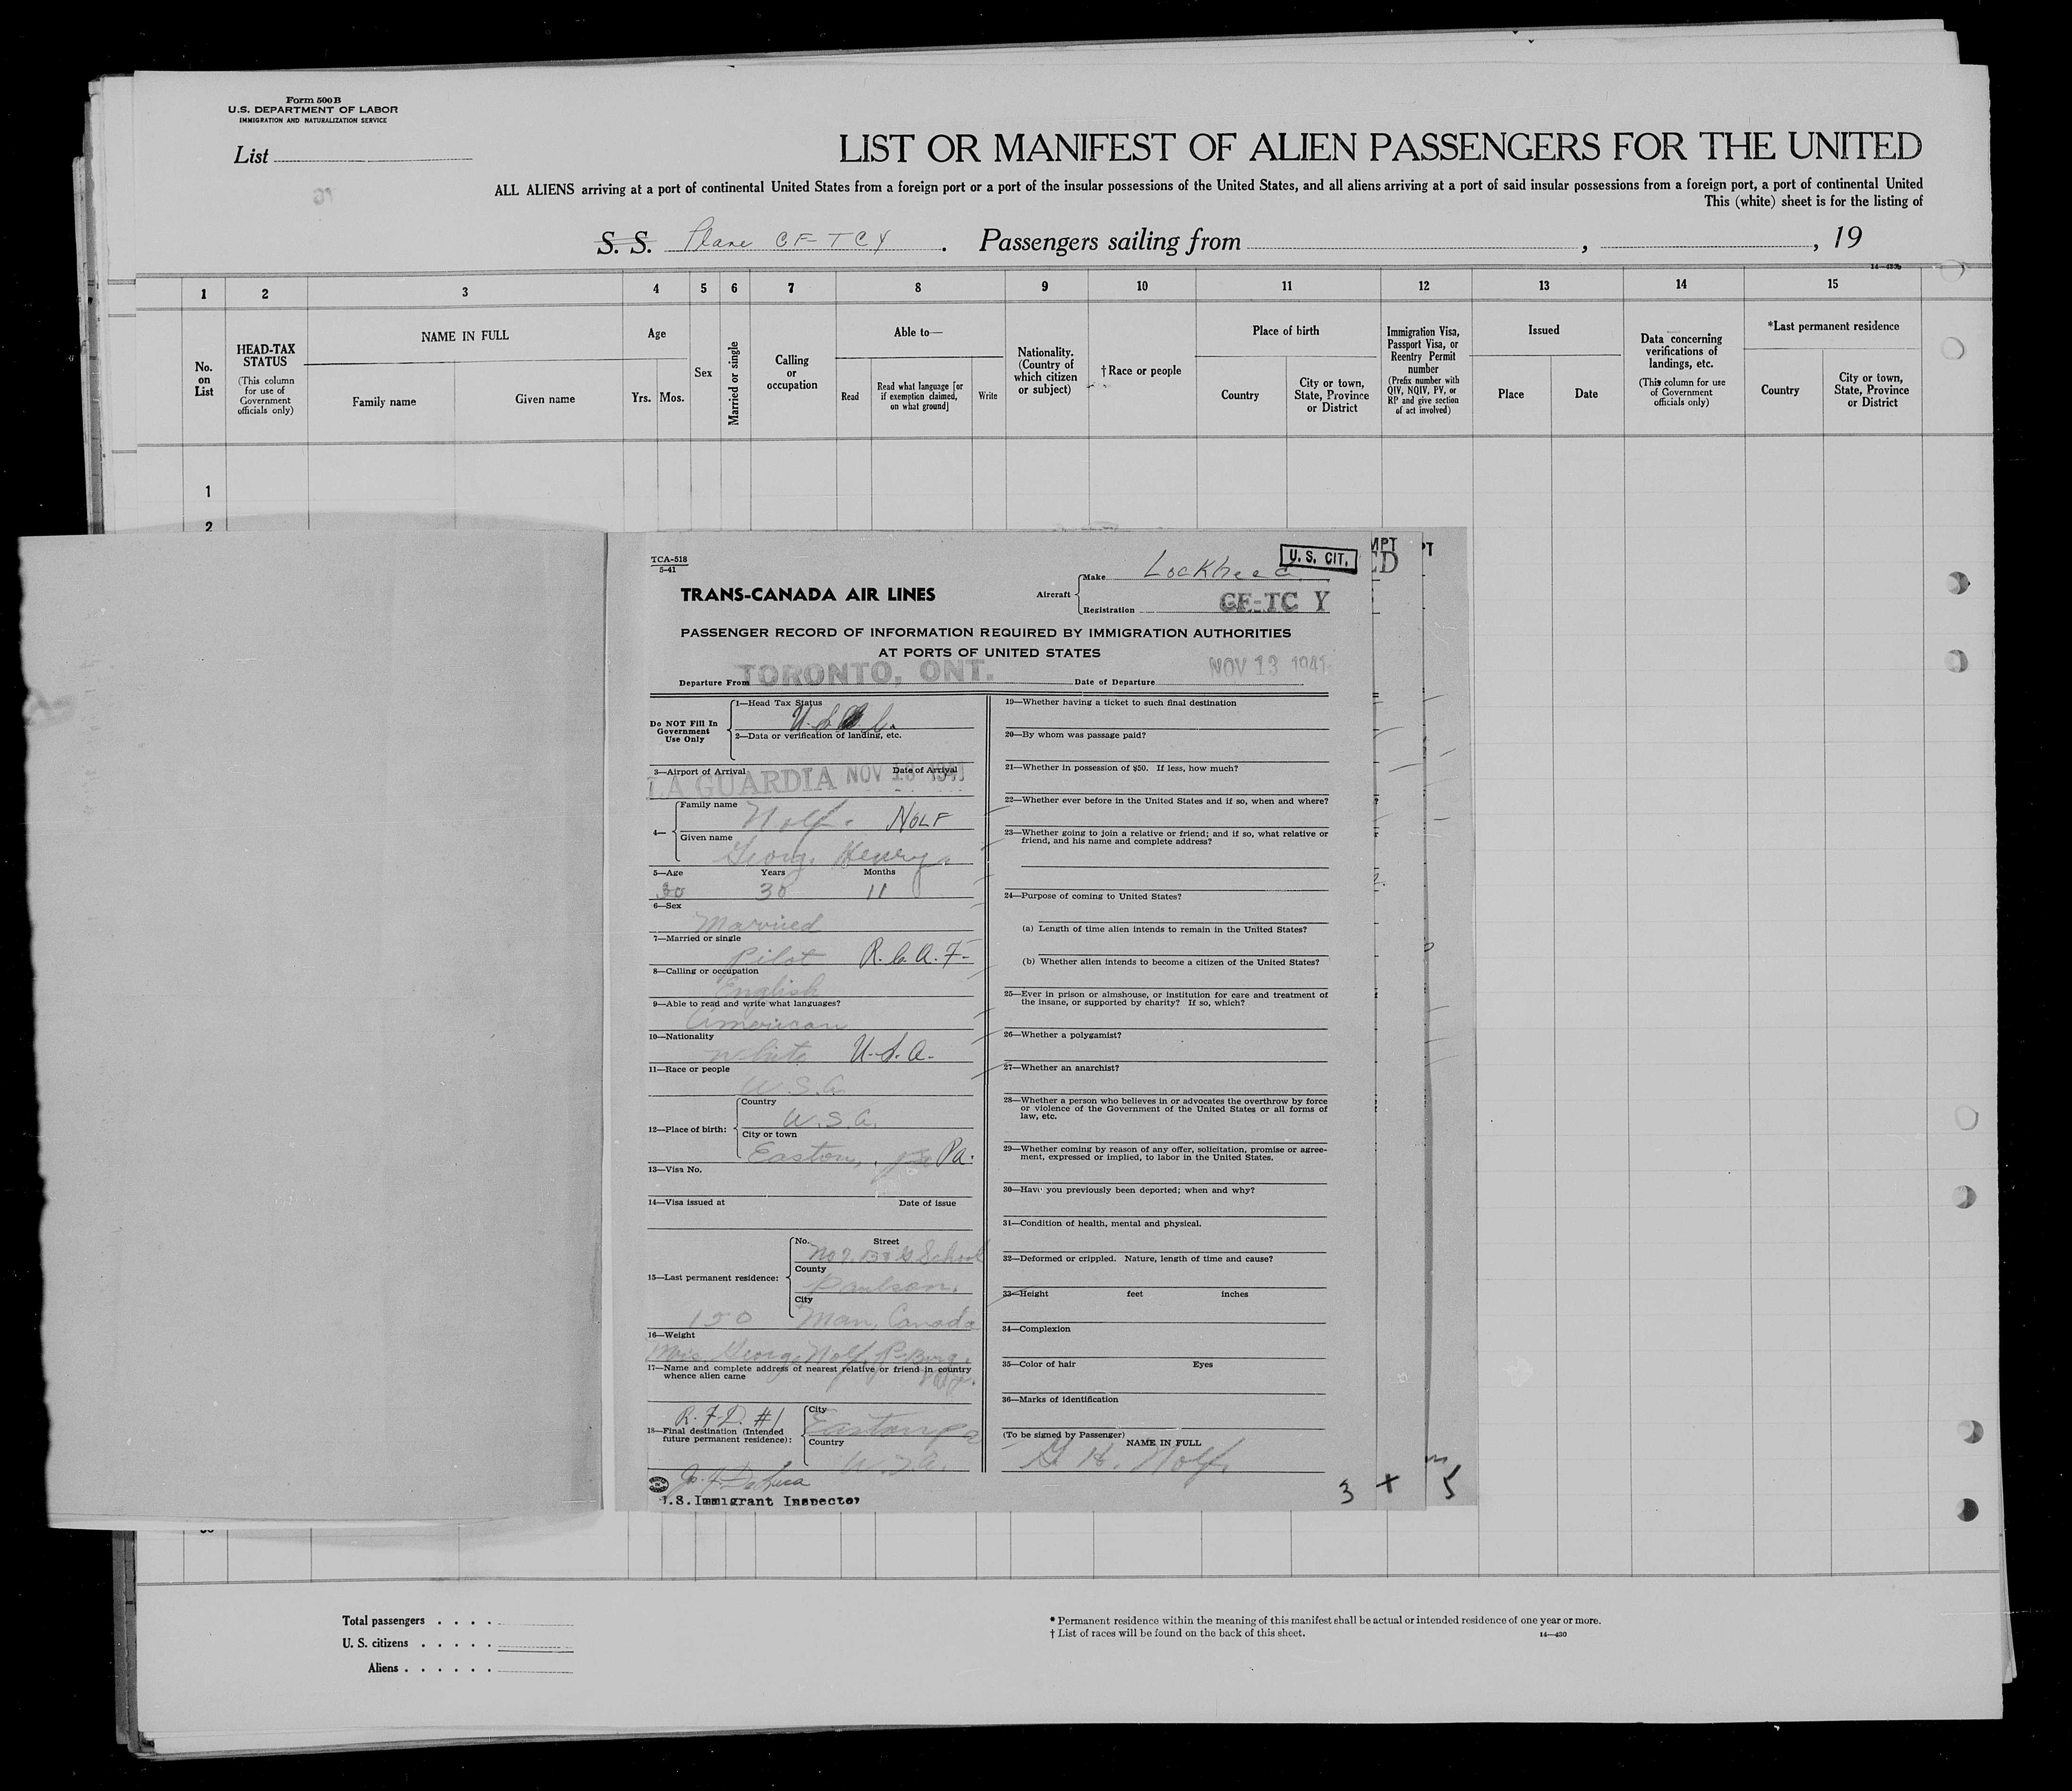 Form 500 B
U.S. DEPARTMENT OF LABOR
IMMIGRATION AND NATURALIZATION SERVICE
List
LIST OR MANIFEST OF ALIEN PASSENGERS FOR THE UNITED
ALL ALIENS arriving at a port of continental United States from a foreign port or a port of the insular possessions of the United States, and all aliens arriving at a port of said insular possessions from a foreign port, a port of continental United
This (white) sheet is for the listing of
S. S. Plane CF-TCY . Passengers sailing from , , 19
1 2 3 4 5 6 7 8 9 10 11 12 13 14 15
No. on List
HEAD-TAX STATUS
(This column for use of Government officials only)
NAME IN FULL
Family name Given name
Age
Yrs. Mos.
Sex
Married or single
Calling or occupation
Able to—
Read
Read what language [or if exemption claimed, on what ground]
Write
Nationality. (Country of which citizen or subject)
†Race or people
Place of birth
Country
City or town, State, Province or District
Immigration Visa, Passport Visa, or Reentry Permit number
(Prefix number with QIV, NQIV, PV, or RP and give section of act involved)
Issued
Place Date
Data concerning verifications of landings, etc.
(This column for use of Government officials only)
*Last permanent residence
Country
City or town, State, Province or District
1
2
TCA-518
5-41
TRANS-CANADA AIR LINES
Aircraft
Make Lockheed
U. S. CIT.
Registration CF-TC Y
PASSENGER RECORD OF INFORMATION REQUIRED BY IMMIGRATION AUTHORITIES
AT PORTS OF UNITED STATES
Departure From TORONTO, ONT. Date of Departure NOV 13 1941
Do NOT Fill In Government Use Only
1—Head Tax Status
2—Data or verification of landing, etc.
3—Airport of Arrival Date of Arrival
LA GUARDIA NOV 13 1941
4—
Family name Nolf. NOLF
Given name
George Henry.
5—Age Years Months
30 30 11
6—Sex
Married
7—Married or single
Pilot R.C.A.F.
8—Calling or occupation
English
9—Able to read and write what languages?
American
10—Nationality
White U.S.A.
11—Race or people
U.S.A.
12—Place of birth:
Country
U.S.A.
City or town
Easton, Pa.
13—Visa No.
14—Visa issued at Date of issue
15—Last permanent residence:
No. Street
No 7. B & G School
County
Paulson,
City
150 Man, Canada
16—Weight
Mrs. George Nolf,
17—Name and complete address of nearest relative or friend in country whence alien came
R.F.D. #1
18—Final destination (Intended future permanent residence):
City
Easton Pa
Country
U.S.A.
U.S. Immigrant Inspector
19—Whether having a ticket to such final destination
20—By whom was passage paid?
21—Whether in possession of $50. If less, how much?
22—Whether ever before in the United States and if so, when and where?
23—Whether going to join a relative or friend; and if so, what relative or
friend, and his name and complete address?
24—Purpose of coming to United States?
(a) Length of time alien intends to remain in the United States?
(b) Whether alien intends to become a citizen of the United States?
25—Ever in prison or almshouse, or institution for care and treatment of
the insane, or supported by charity? If so, which?
26—Whether a polygamist?
27—Whether an anarchist?
28—Whether a person who believes in or advocates the overthrow by force
or violence of the Government of the United States or all forms of
law, etc.
29—Whether coming by reason of any offer, solicitation, promise or agree-
ment, expressed or implied, to labor in the United States.
30—Have you previously been deported; when and why?
31—Condition of health, mental and physical.
32—Deformed or crippled. Nature, length of time and cause?
33—Height feet inches
34—Complexion
35—Color of hair Eyes
36—Marks of identification
(To be signed by Passenger) NAME IN FULL
G H. Nolf.
3 + 5
Total passengers . . . .
U. S. citizens . . . . .
Aliens . . . . . .
* Permanent residence within the meaning of this manifest shall be actual or intended residence of one year or more.
† List of races will be found on the back of this sheet. 14—430